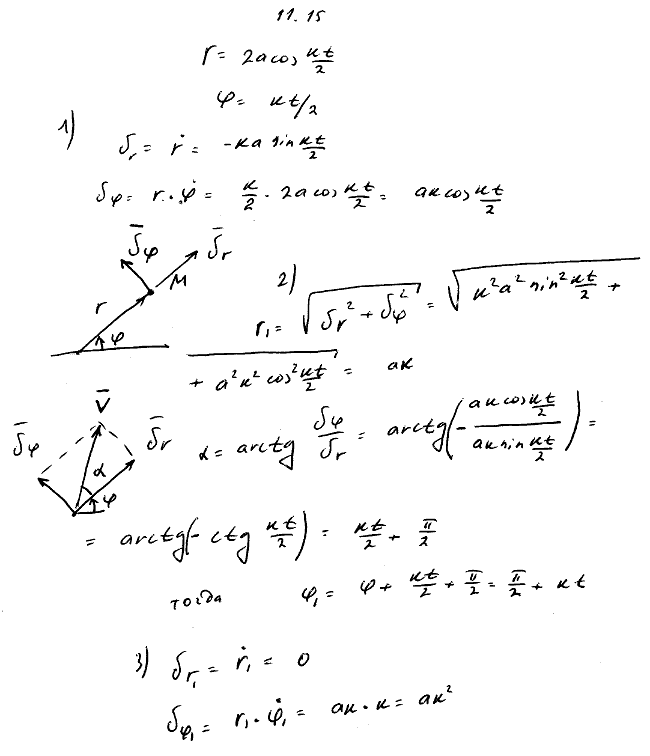 11.15
r = 2a cos кt/2
φ = кt/2
1)
δr = ṙ = -кa sin кt/2
δφ = r·φ̇ = к/2 · 2a cos кt/2 = aк cos кt/2
δ̄φ δ̄r
M
r
φ
2)
r₁ = √(δr² + δφ²) = √(к²a² sin² кt/2 +
+ a²к² cos² кt/2) = aк
V̄
δ̄φ δ̄r
α
φ
α = arctg δφ/δr = arctg(- aк cos кt/2 / aк sin кt/2) =
= arctg(-ctg кt/2) = кt/2 + π/2
тогда φ₁ = φ + кt/2 + π/2 = π/2 + кt
3) δr₁ = ṙ₁ = 0
δφ₁ = r₁·φ̇₁ = aк·к = aк²